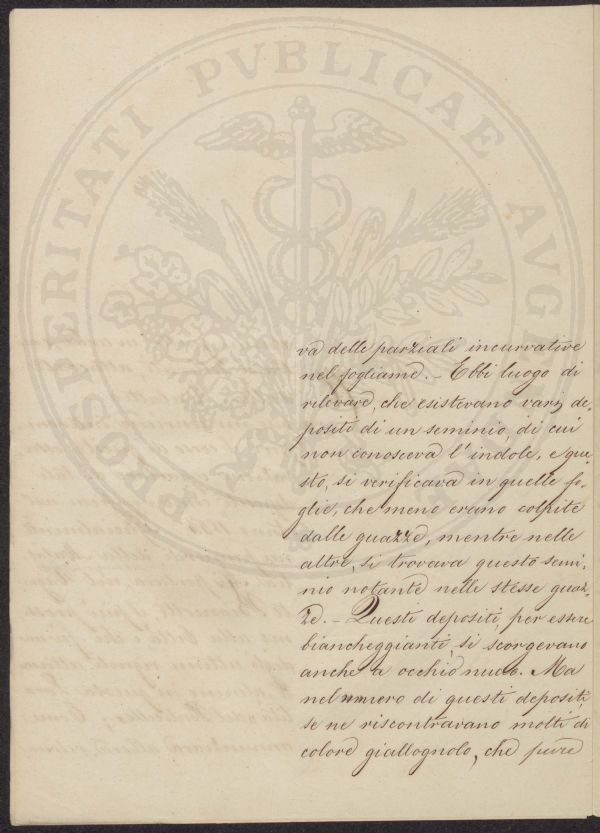 PROSPERITATI PVBLICAE AVG
va delle parziali incurvative
nel fogliame. – Ebbi luogo di
rilevare, che esistevano varij de-
positi di un seminio, di cui
non conosceva l'indole, e que-
sto, si verificava in quelle fo-
glie, che meno erano colpite
dalle guazze, mentre nelle
altre, si trovava questo semi-
nio notante nelle stesse guaz-
ze. – Questi depositi, per essere
biancheggianti, si scorgevano
anche a occhio nudo. Ma
nel numero di questi depositi,
se ne riscontravano molti di
colore giallognolo, che pure